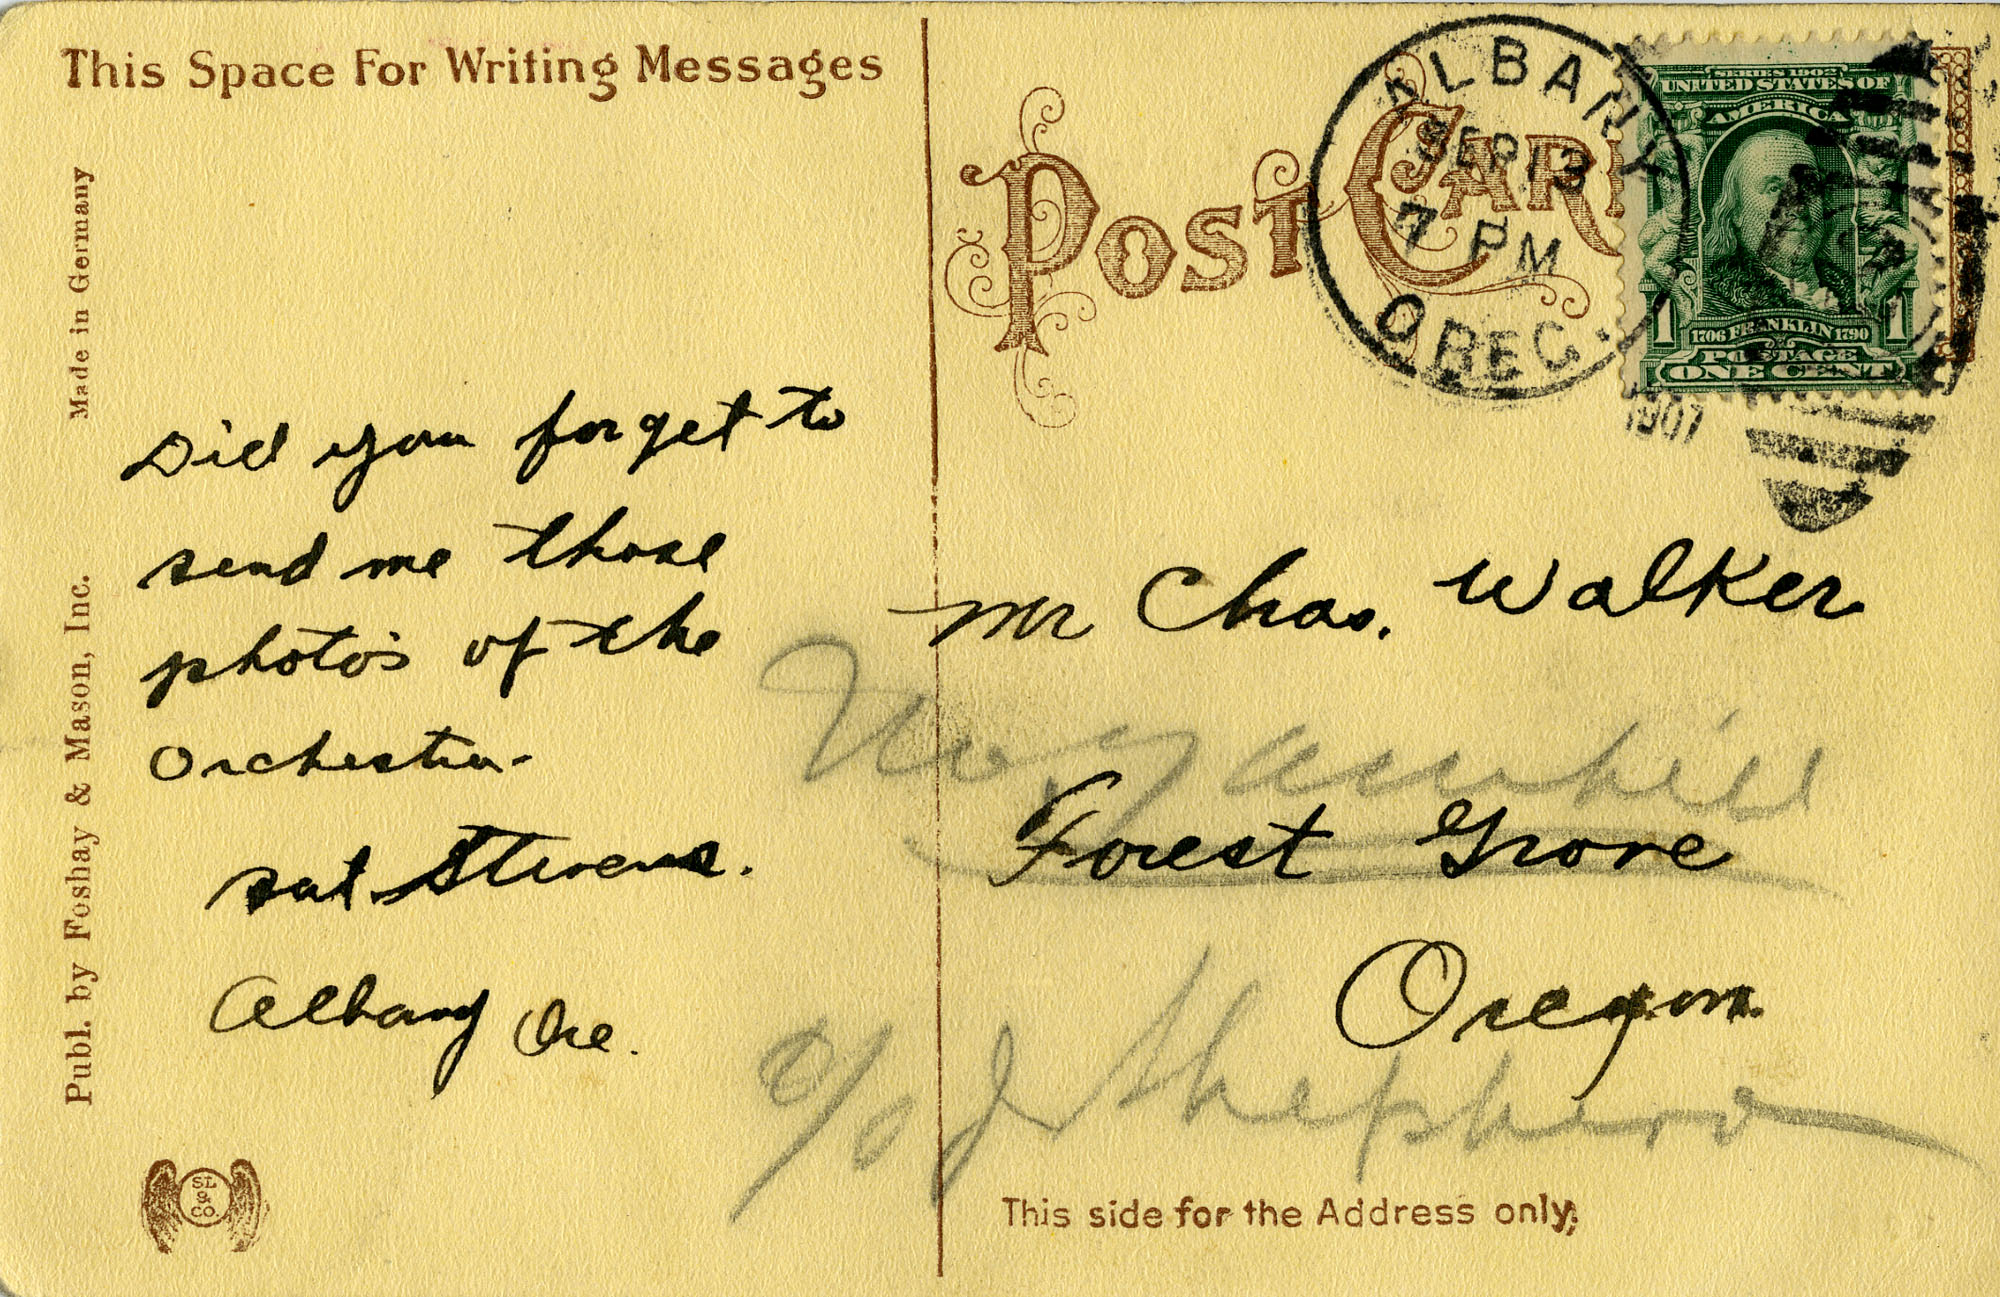 This Space For Writing Messages
Made in Germany
Publ. by Foshay & Mason, Inc.
Did you forget to
send me those
photo's of the
Orchestra-
Stevens.
Albany Ore.
SL
&
CO.
POST CARD
ALBANY
SEP 13
7 PM
OREG.
1907
SERIES 1902
UNITED STATES OF
AMERICA
1 1
1706 FRANKLIN 1790
POSTAGE
ONE CENT
Mr Chas. Walker
No. Yamhill
Forest Grove
Oregon.
c/o J Shepherd
This side for the Address only.